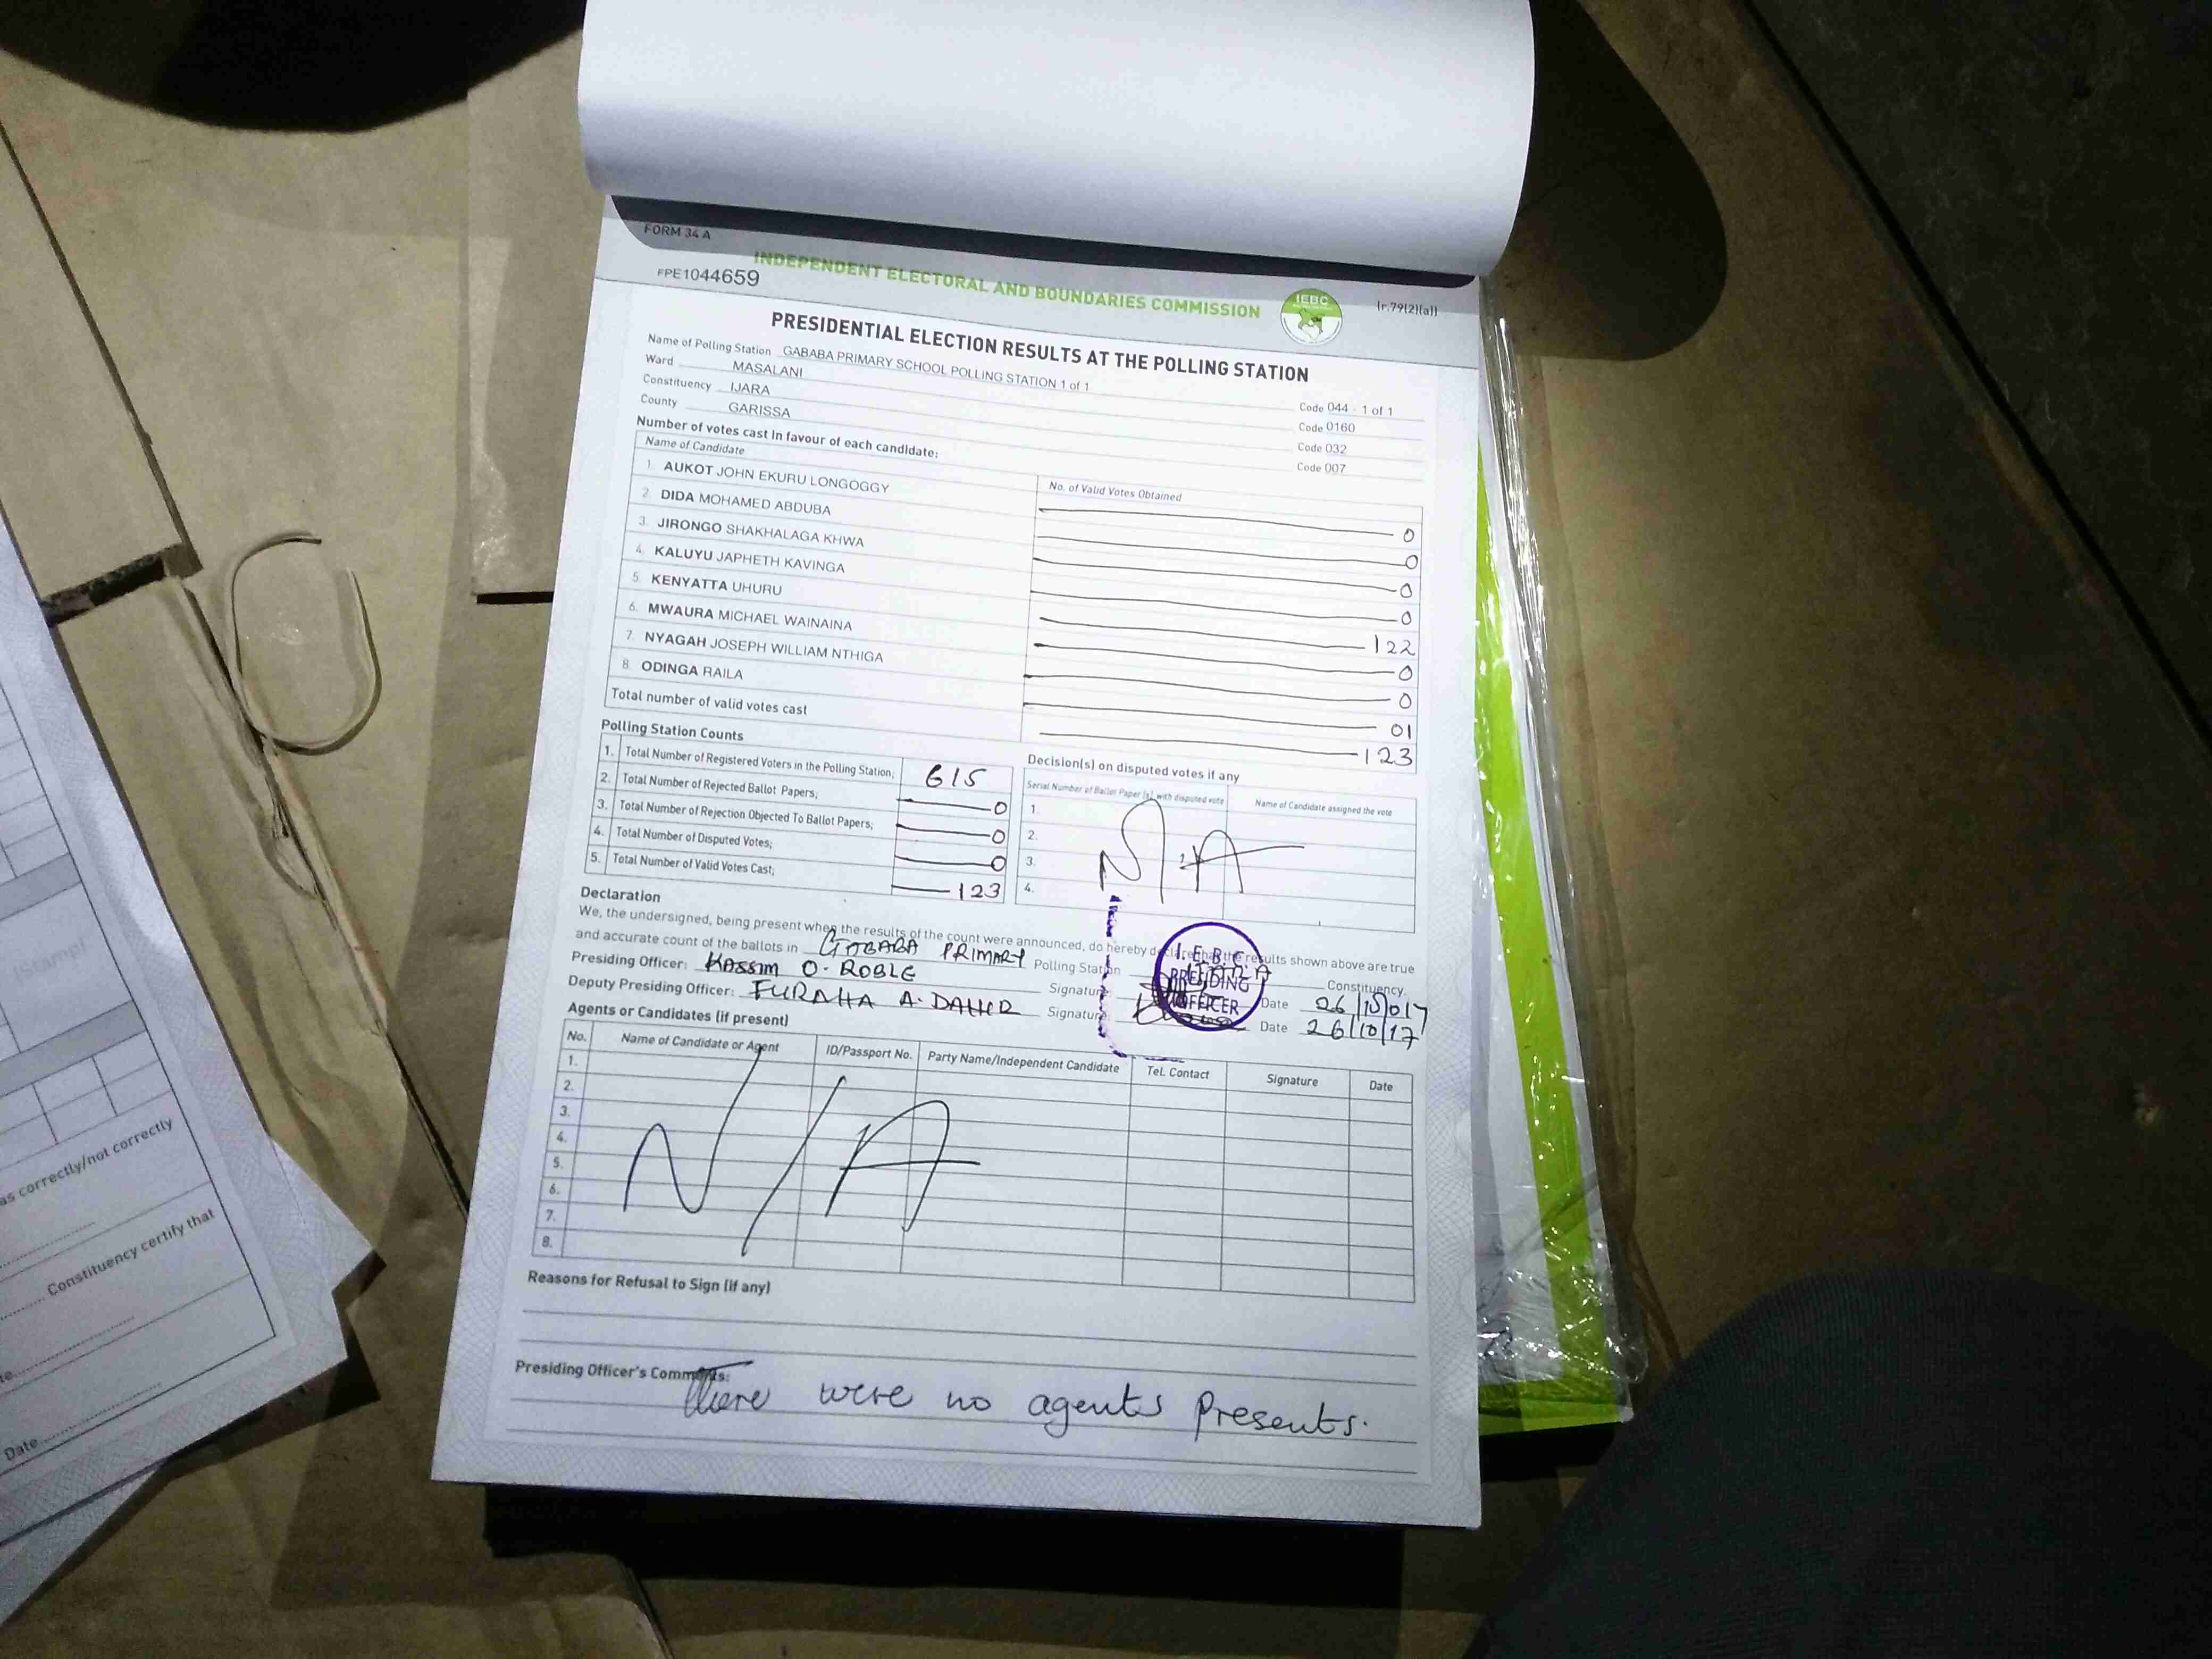 FORM 34 A
INDEPENDENT ELECTORAL AND BOUNDARIES COMMISSION
IEBC
(r.79(2)(a))
FPE1044659
PRESIDENTIAL ELECTION RESULTS AT THE POLLING STATION
Name of Polling Station GABABA PRIMARY SCHOOL POLLING STATION 1 of 1 Code 044 - 1 of 1
Ward MASALANI Code 0160
Constituency IJARA Code 032
County GARISSA Code 007
Number of votes cast in favour of each candidate:
Name of Candidate No. of Valid Votes Obtained
1. AUKOT JOHN EKURU LONGOGGY 0
2. DIDA MOHAMED ABDUBA 0
3. JIRONGO SHAKHALAGA KHWA 0
4. KALUYU JAPHETH KAVINGA 0
5. KENYATTA UHURU 122
6. MWAURA MICHAEL WAINAINA 0
7. NYAGAH JOSEPH WILLIAM NTHIGA 0
8. ODINGA RAILA 01
Total number of valid votes cast 123
Polling Station Counts
1. Total Number of Registered Voters in the Polling Station; 615
2. Total Number of Rejected Ballot Papers; 0
3. Total Number of Rejection Objected To Ballot Papers; 0
4. Total Number of Disputed Votes; 0
5. Total Number of Valid Votes Cast; 123
Decision(s) on disputed votes if any
Serial Number of Ballot Paper (s) with disputed vote Name of Candidate assigned the vote
1.
2.
3.
4.
N/A
Declaration
We, the undersigned, being present when the results of the count were announced, do hereby declare that the results shown above are true
and accurate count of the ballots in GABABA PRIMARY Polling Station IJARA Constituency.
Presiding Officer: KASSIM O. ROBLE Signature Date 26/10/017
Deputy Presiding Officer: FURAHA A. DAHIR Signature Date 26/10/17
I.E.B.C
PRESIDING
OFFICER
Agents or Candidates (if present)
No. Name of Candidate or Agent ID/Passport No. Party Name/Independent Candidate Tel. Contact Signature Date
1.
2.
3.
4.
5.
6.
7.
8.
N/A
Reasons for Refusal to Sign (if any)
Presiding Officer's Comments:
There were no agents presents.
Stamp)
as correctly/not correctly
Constituency certify that
Date